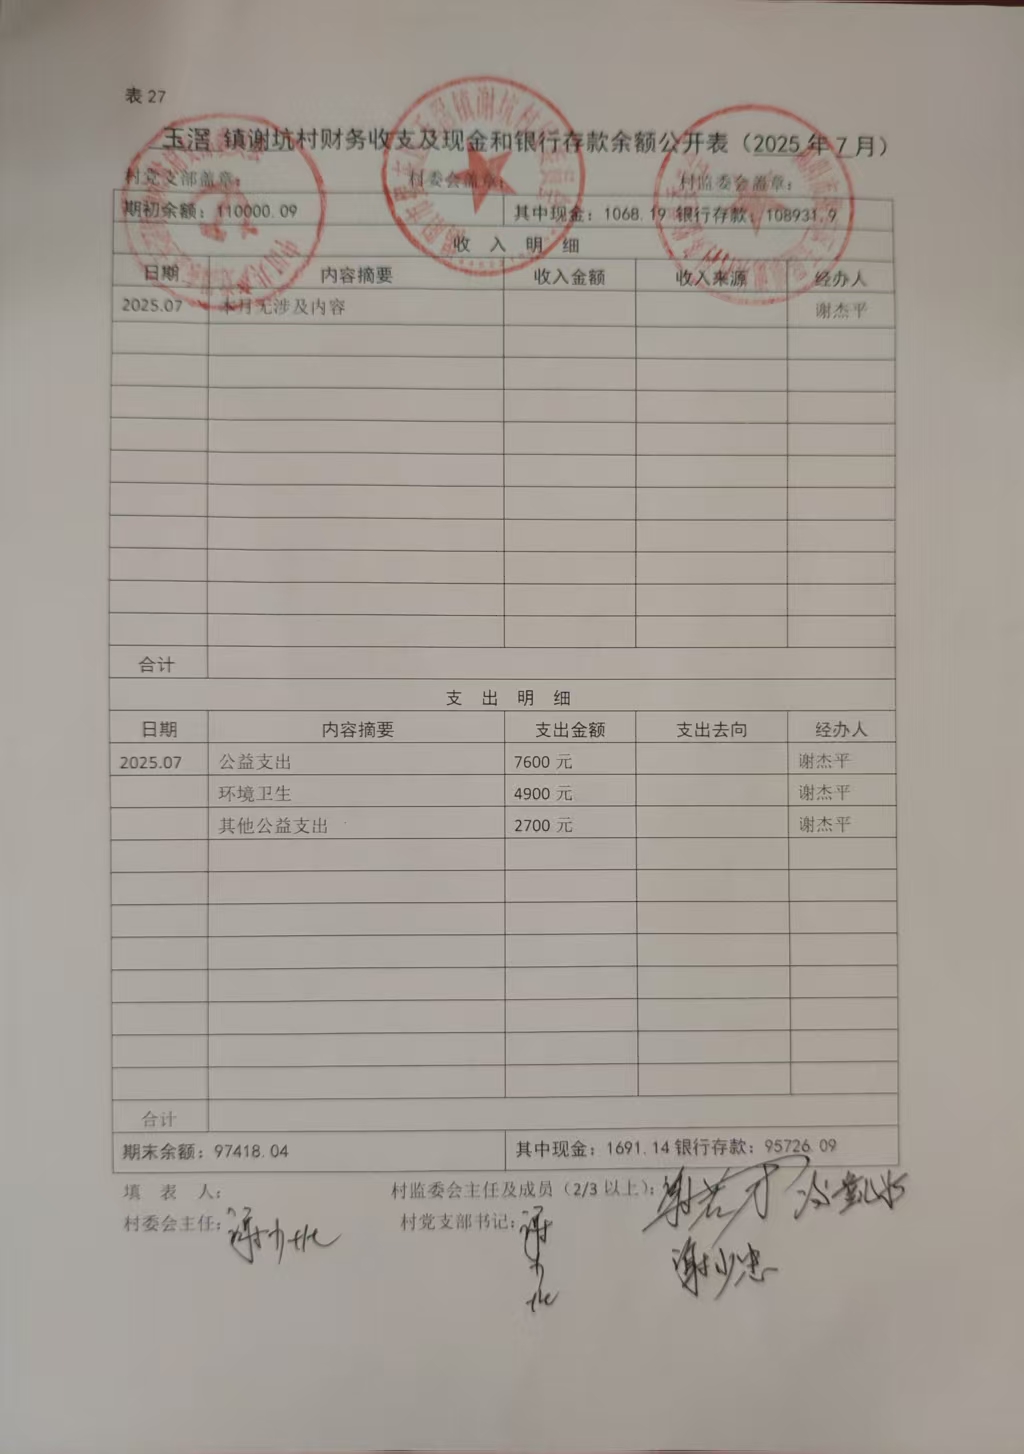 表 27
玉滘 镇谢坑村财务收支及现金和银行存款余额公开表（2025 年 7 月）
村党支部盖章： 村委会盖章： 村监委会盖章：
期初余额：110000.09 其中现金：1068.19 银行存款：108931.9
收 入 明 细
日期 内容摘要 收入金额 收入来源 经办人
2025.07 本月无涉及内容 谢杰平
合计
支 出 明 细
日期 内容摘要 支出金额 支出去向 经办人
2025.07 公益支出 7600 元 谢杰平
环境卫生 4900 元 谢杰平
其他公益支出 2700 元 谢杰平
合计
期末余额：97418.04 其中现金：1691.14 银行存款：95726.09
填 表 人： 村监委会主任及成员（2/3 以上）：
村委会主任： 村党支部书记：
谢少忠